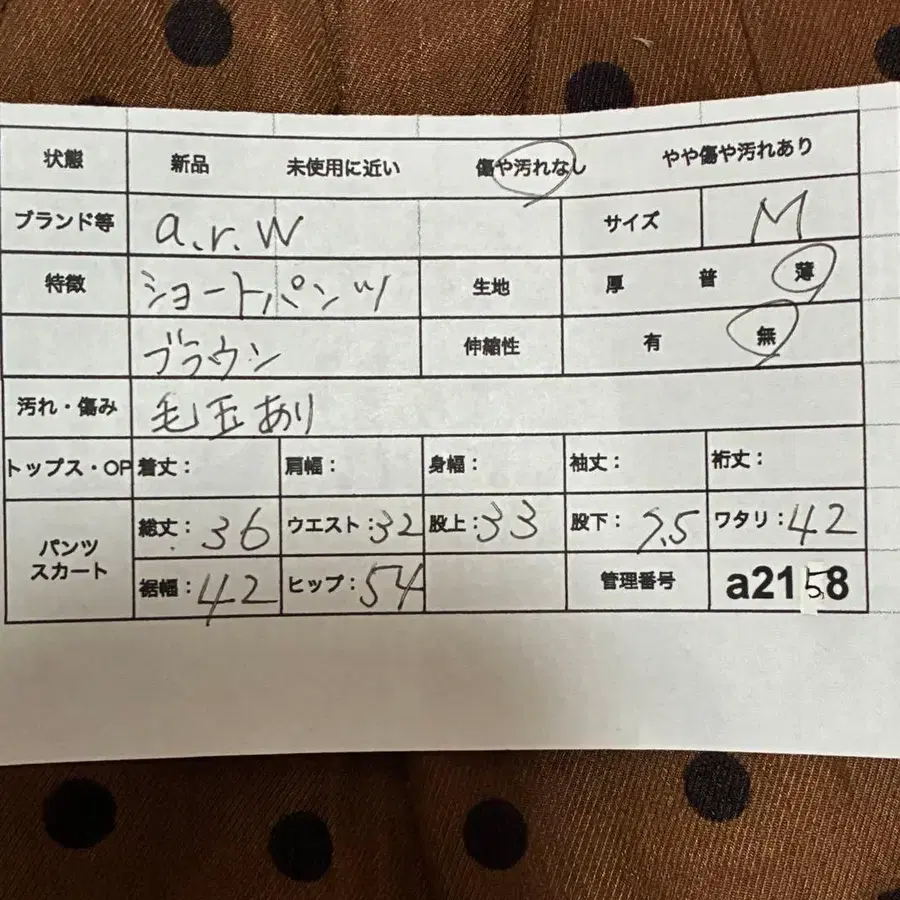 状態 新品 未使用に近い 傷や汚れなし やや傷や汚れあり
ブランド等 a.r.w サイズ M
特徴 ショートパンツ 生地 厚 普 薄
ブラウン 伸縮性 有 無
汚れ・傷み 毛玉あり
トップス・OP 着丈: 肩幅: 身幅: 袖丈: 裄丈:
パンツ スカート 総丈:36 ウエスト:32 股上:33 股下:7.5 ワタリ:42
裾幅:42 ヒップ:54 管理番号 a2158